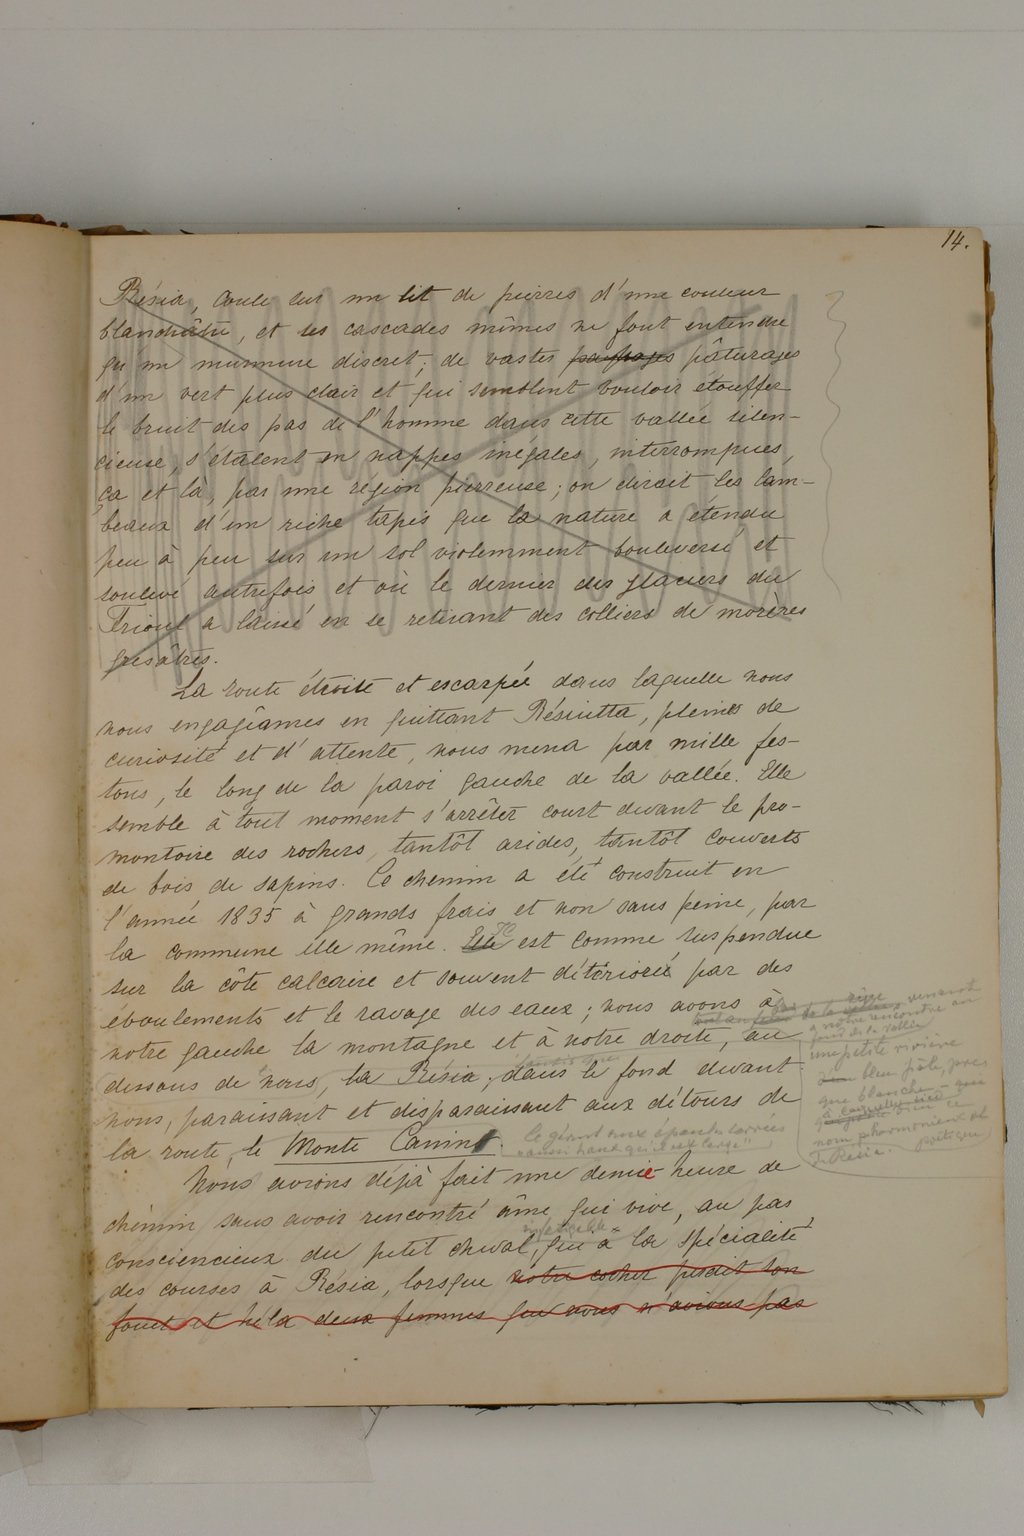 14.
Résia, coule sur un lit de pierres d'une couleur
blanchâtre, et les cascades mêmes ne font entendre
qu'un murmure discret; de vastes paysages pâturages
d'un vert plus clair et qui semblent vouloir étouffer
le bruit des pas de l'homme dans cette vallée silen-
cieuse, s'étalent en nappes inégales, interrompues,
ça et là, par une région pierreuse; on dirait les lam-
beaux d'un riche tapis que la nature a étendu
peu à peu sur un sol violemment bouleversé et
soulevé autrefois et où le dernier des glaciers du
Frioul a laissé en se retirant des colliers de morères
grisâtres.
La route étroite et escarpée dans laquelle nous
nous engagîames en quittant Résiutta, pleins de
curiosité et d'attente, nous mena par mille fes-
tons, le long de la paroi gauche de la vallée. Elle
semble à tout moment s'arrêter court devant le pro-
montoire des rochers, tantôt arides, tantôt couverts
de bois de sapins. Ce chemin a été construit en
l'année 1835 à grands frais et non sans peine, par
la commune elle même. Elle est comme suspendue
sur la côte calcaire et souvent détériorée par des
éboulements et le ravage des eaux; nous avons à
notre gauche la montagne et à notre droite, au
dessous de nous, la Résia; dans le fond devant
nous, paraissant et disparaissant aux détours de
la route, le Monte Canino.
le géant aux épaules carrées
aussi haut qu'il est large"
venant
à notre rencontre au
fond de la vallée
une petite rivière
bleu pâle, presque
que blanche - qui
nom pharmonieux et
poétique
de Résia.
Nous avions déjà fait une demie heure de
chemin sans avoir rencontré âme qui vive, au pas
consciencieux du petit cheval, qui a la spécialité
des courses à Résia, lorsque notre cocher perdit son
fouet et héla deux femmes que nous n'avions pas